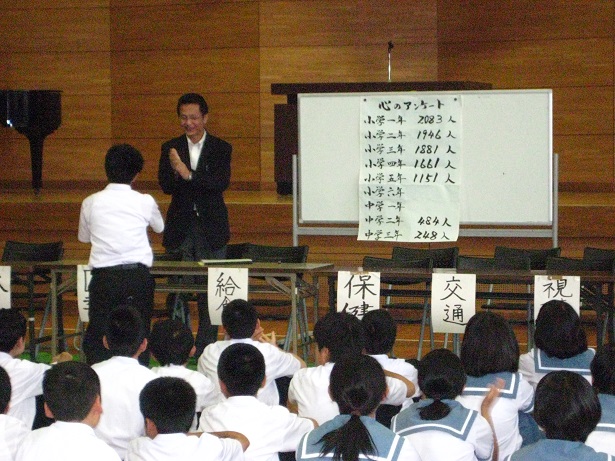 心のアンケート
小学一年 2083人
小学二年 1946人
小学三年 1881人
小学四年 1661人
小学五年 1151人
小学六年
中学一年
中学二年 484人
中学三年 248人
給
保健
交
視